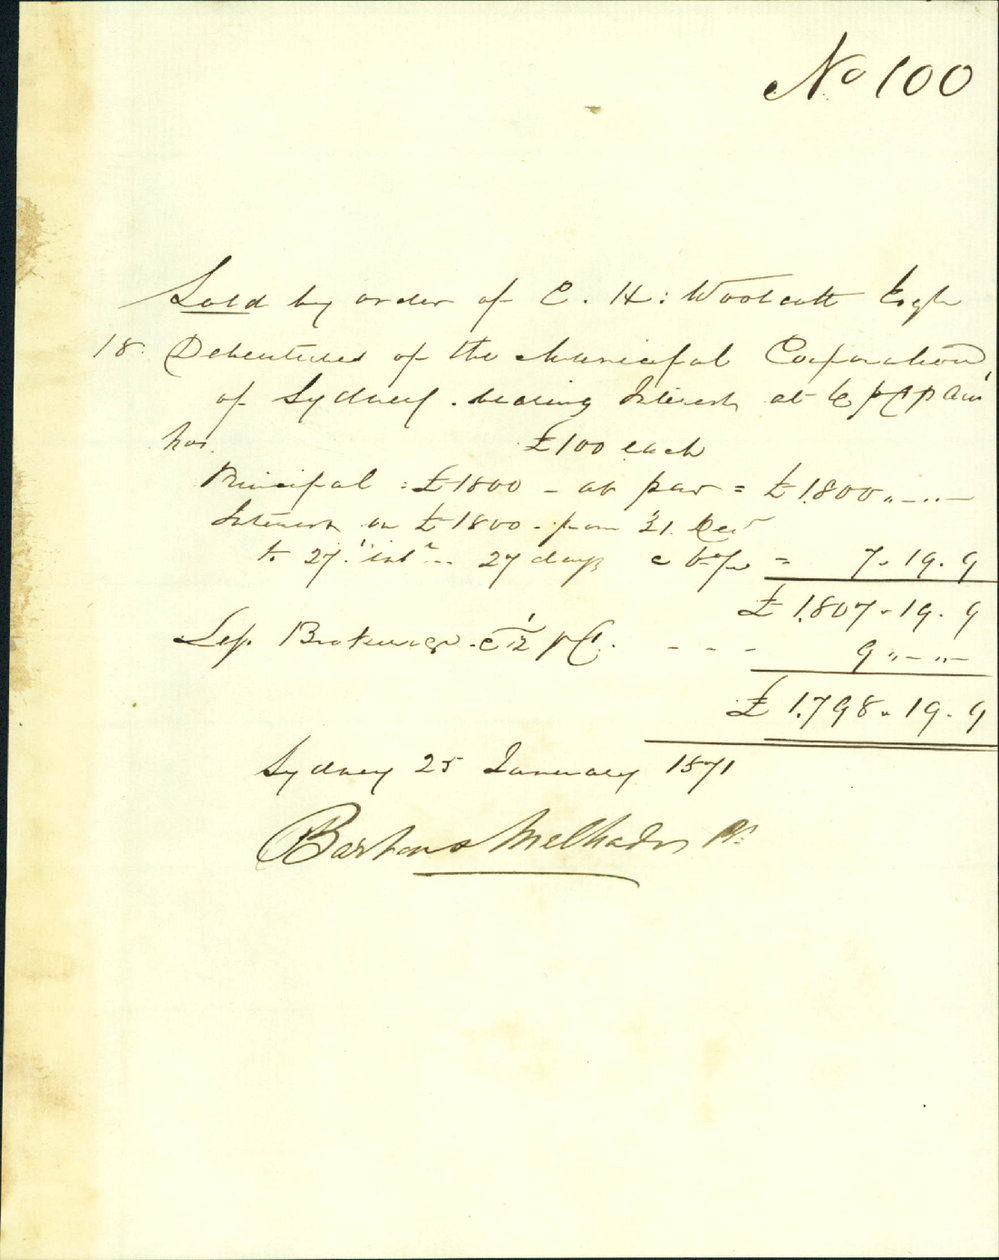 No 100
Sold by order of C. H: Woolcott Esqr
18 Debentures of the Municipal Corporation
of Sydney. bearing Interest at 6 p C p Ann
£100 each
Principal : £1800 - at par = £ 1.800 „ - „ -
Interest on £1800 - from 31. Decr
to 27. inst .. 27 days @ 6 % = 7. 19. 9
£ 1.807 - 19. 9
Less Brokerage @ 1/2 p Ct. - - - 9 „ - „ -
£ 1.798 - 19. 9
Sydney 25 January 1871